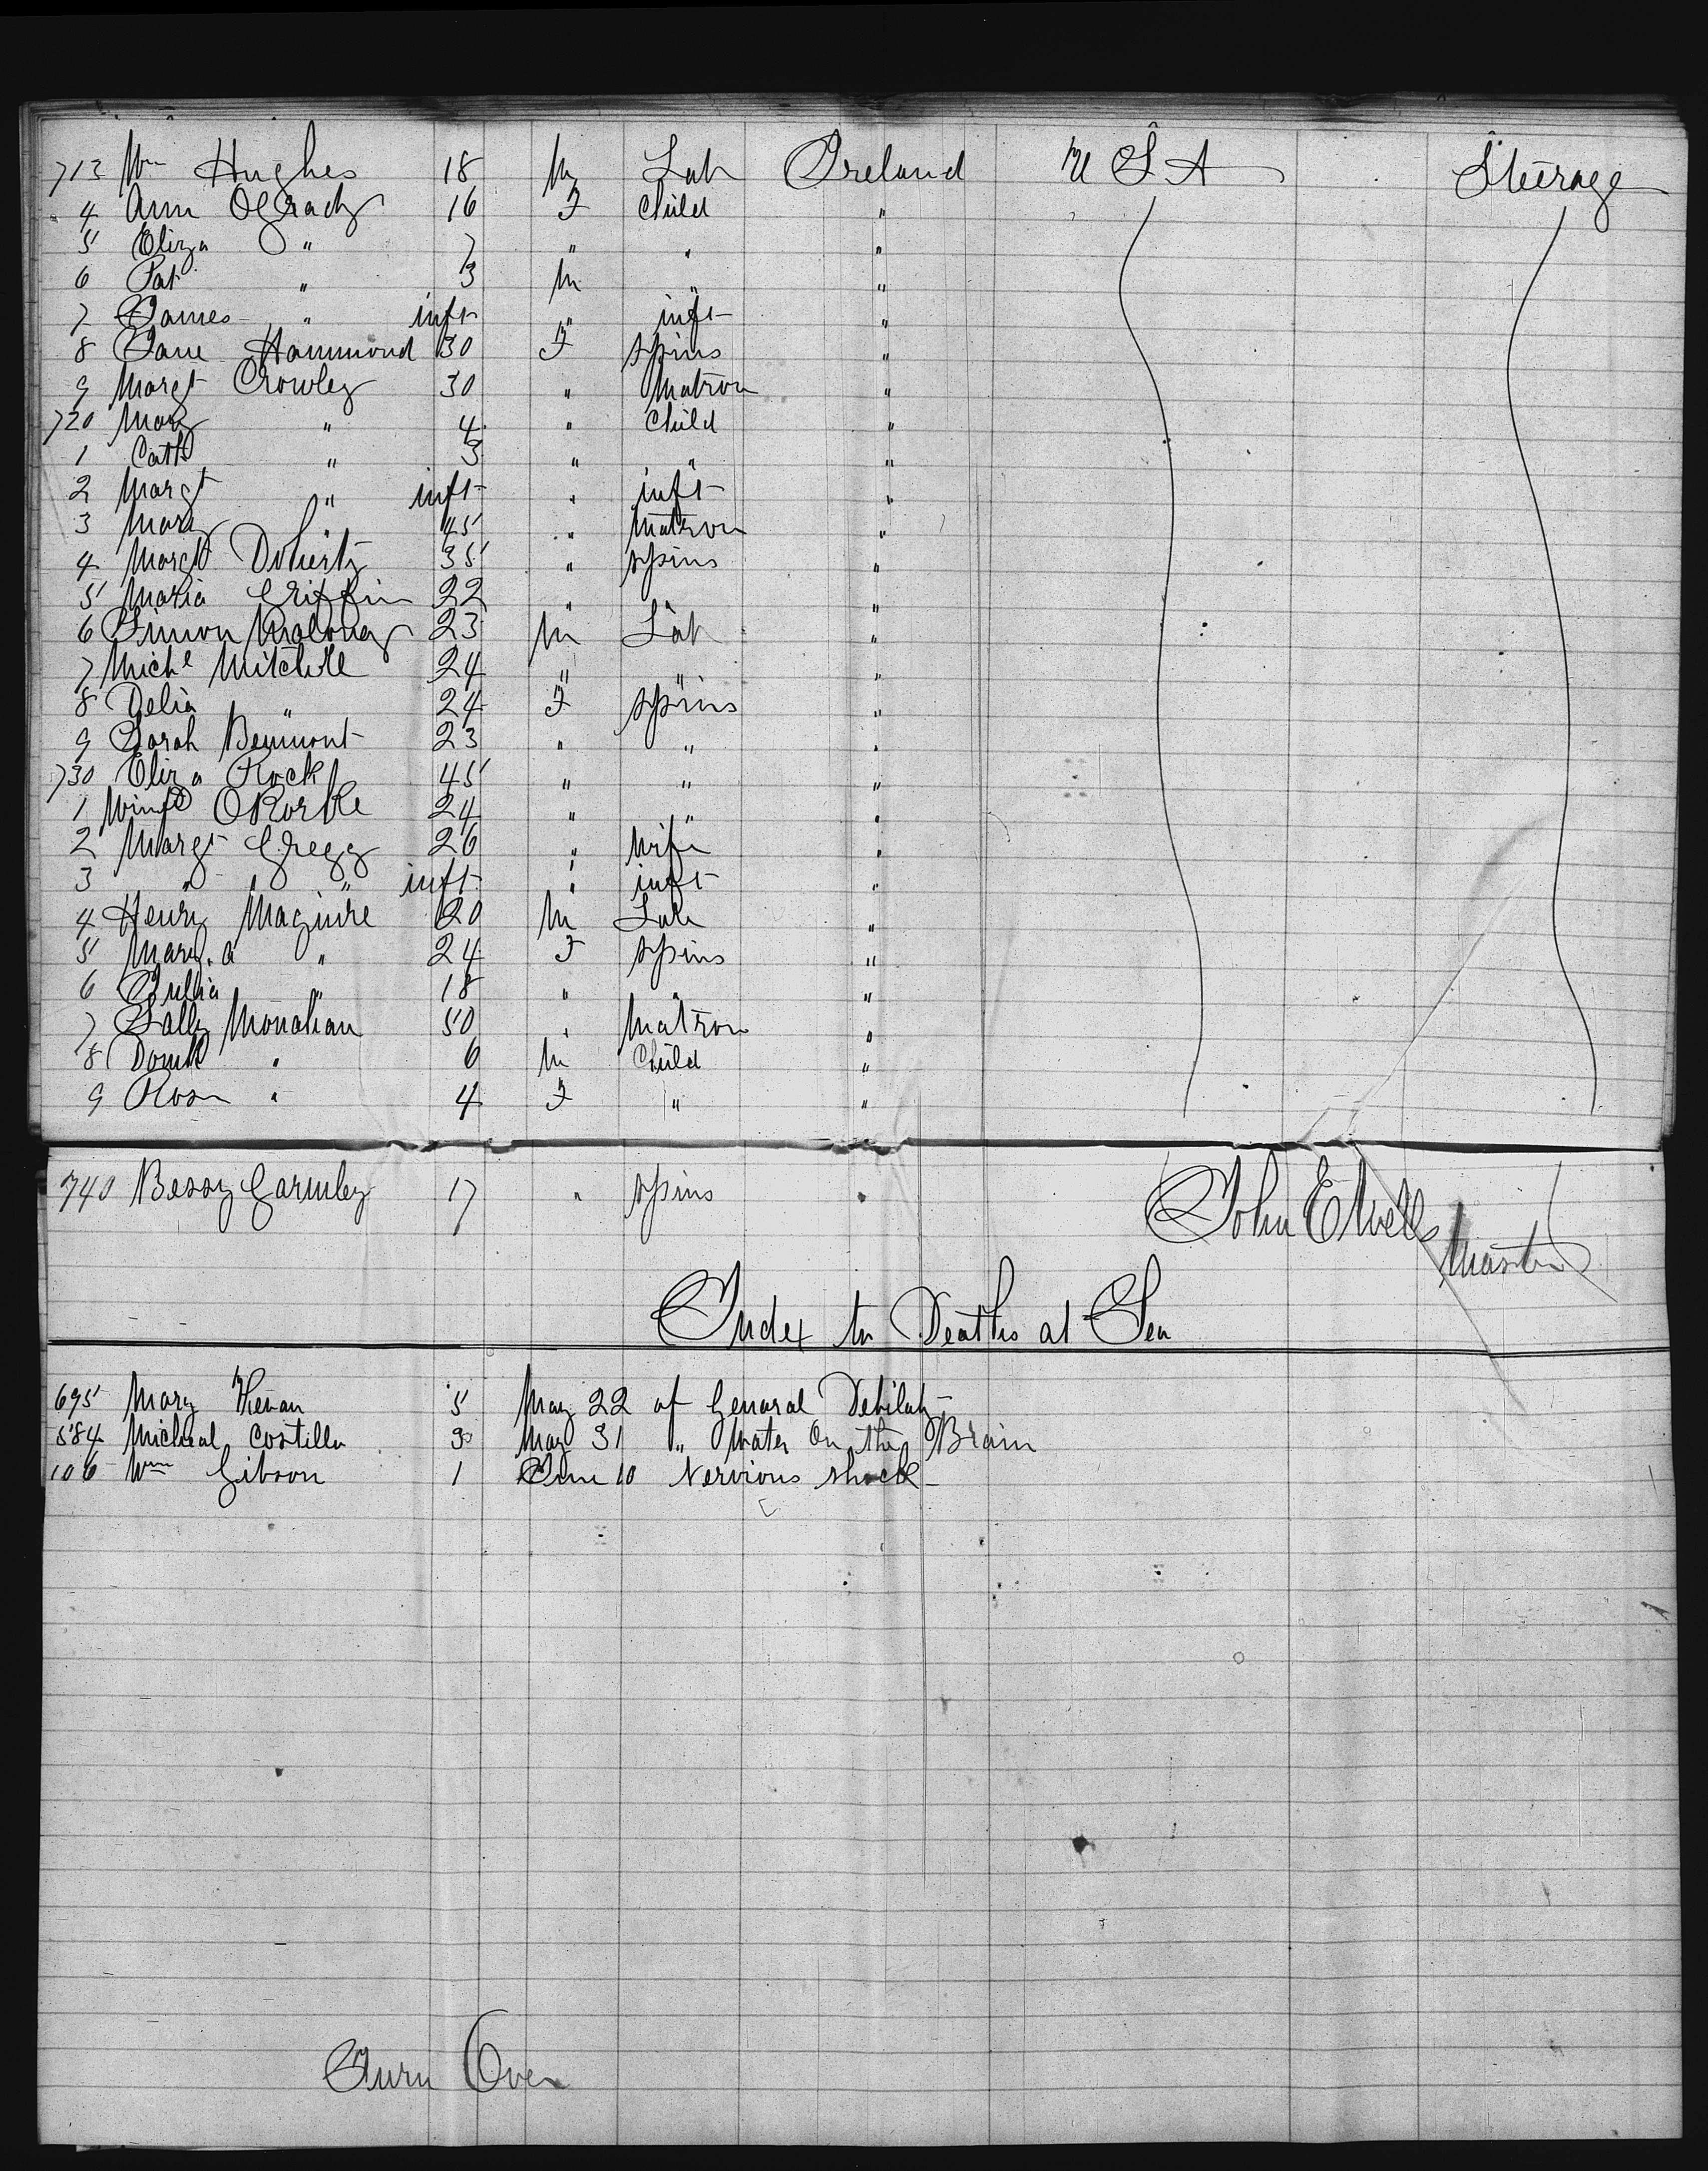 713 Wm Hughes 18 M Lab Ireland U S A Steerage
4 Ann OGrady 16 F Child "
5 Eliza " 7 " " "
6 Pat " 3 M " "
7 James " inft " inft "
8 Jane Hammond 30 F Spins "
9 Margt Crowley 30 " Matron "
720 Mary " 4 " Child "
1 Cath " 3 " " "
2 Margt " inft " inft "
3 Mary " 45 " Matron "
4 Margt Doherty 35 " Spins "
5 Maria Griffin 22 " "
6 Simon Maloney 23 M Lab "
7 Michl Mitchell 24 " " "
8 Delia " 24 F Spins "
9 Sarah Beumont 23 " " "
730 Eliza Rock 45 " " "
1 Winfd ORorke 24 " " "
2 Margt Gregg 26 " Wife "
3 " " inft " inft "
4 Henry Maguire 20 M Lab "
5 Mary. A " 24 F Spins "
6 Julia " 18 " " "
7 Sally Monahan 50 " Matron "
8 Domk " 6 M Child "
9 Rosa " 4 F " "
740 Bessy Gormley 17 " Spins "
John E Wells
Master
Index to Deaths at Sea
695 Mary Kievan 5 May 22 of General Debilaty
584 Micheal Costillo 3 May 31 " Water On the Brain
106 Wm Gibson 1 June 10 Nervious Shock
Turn Over